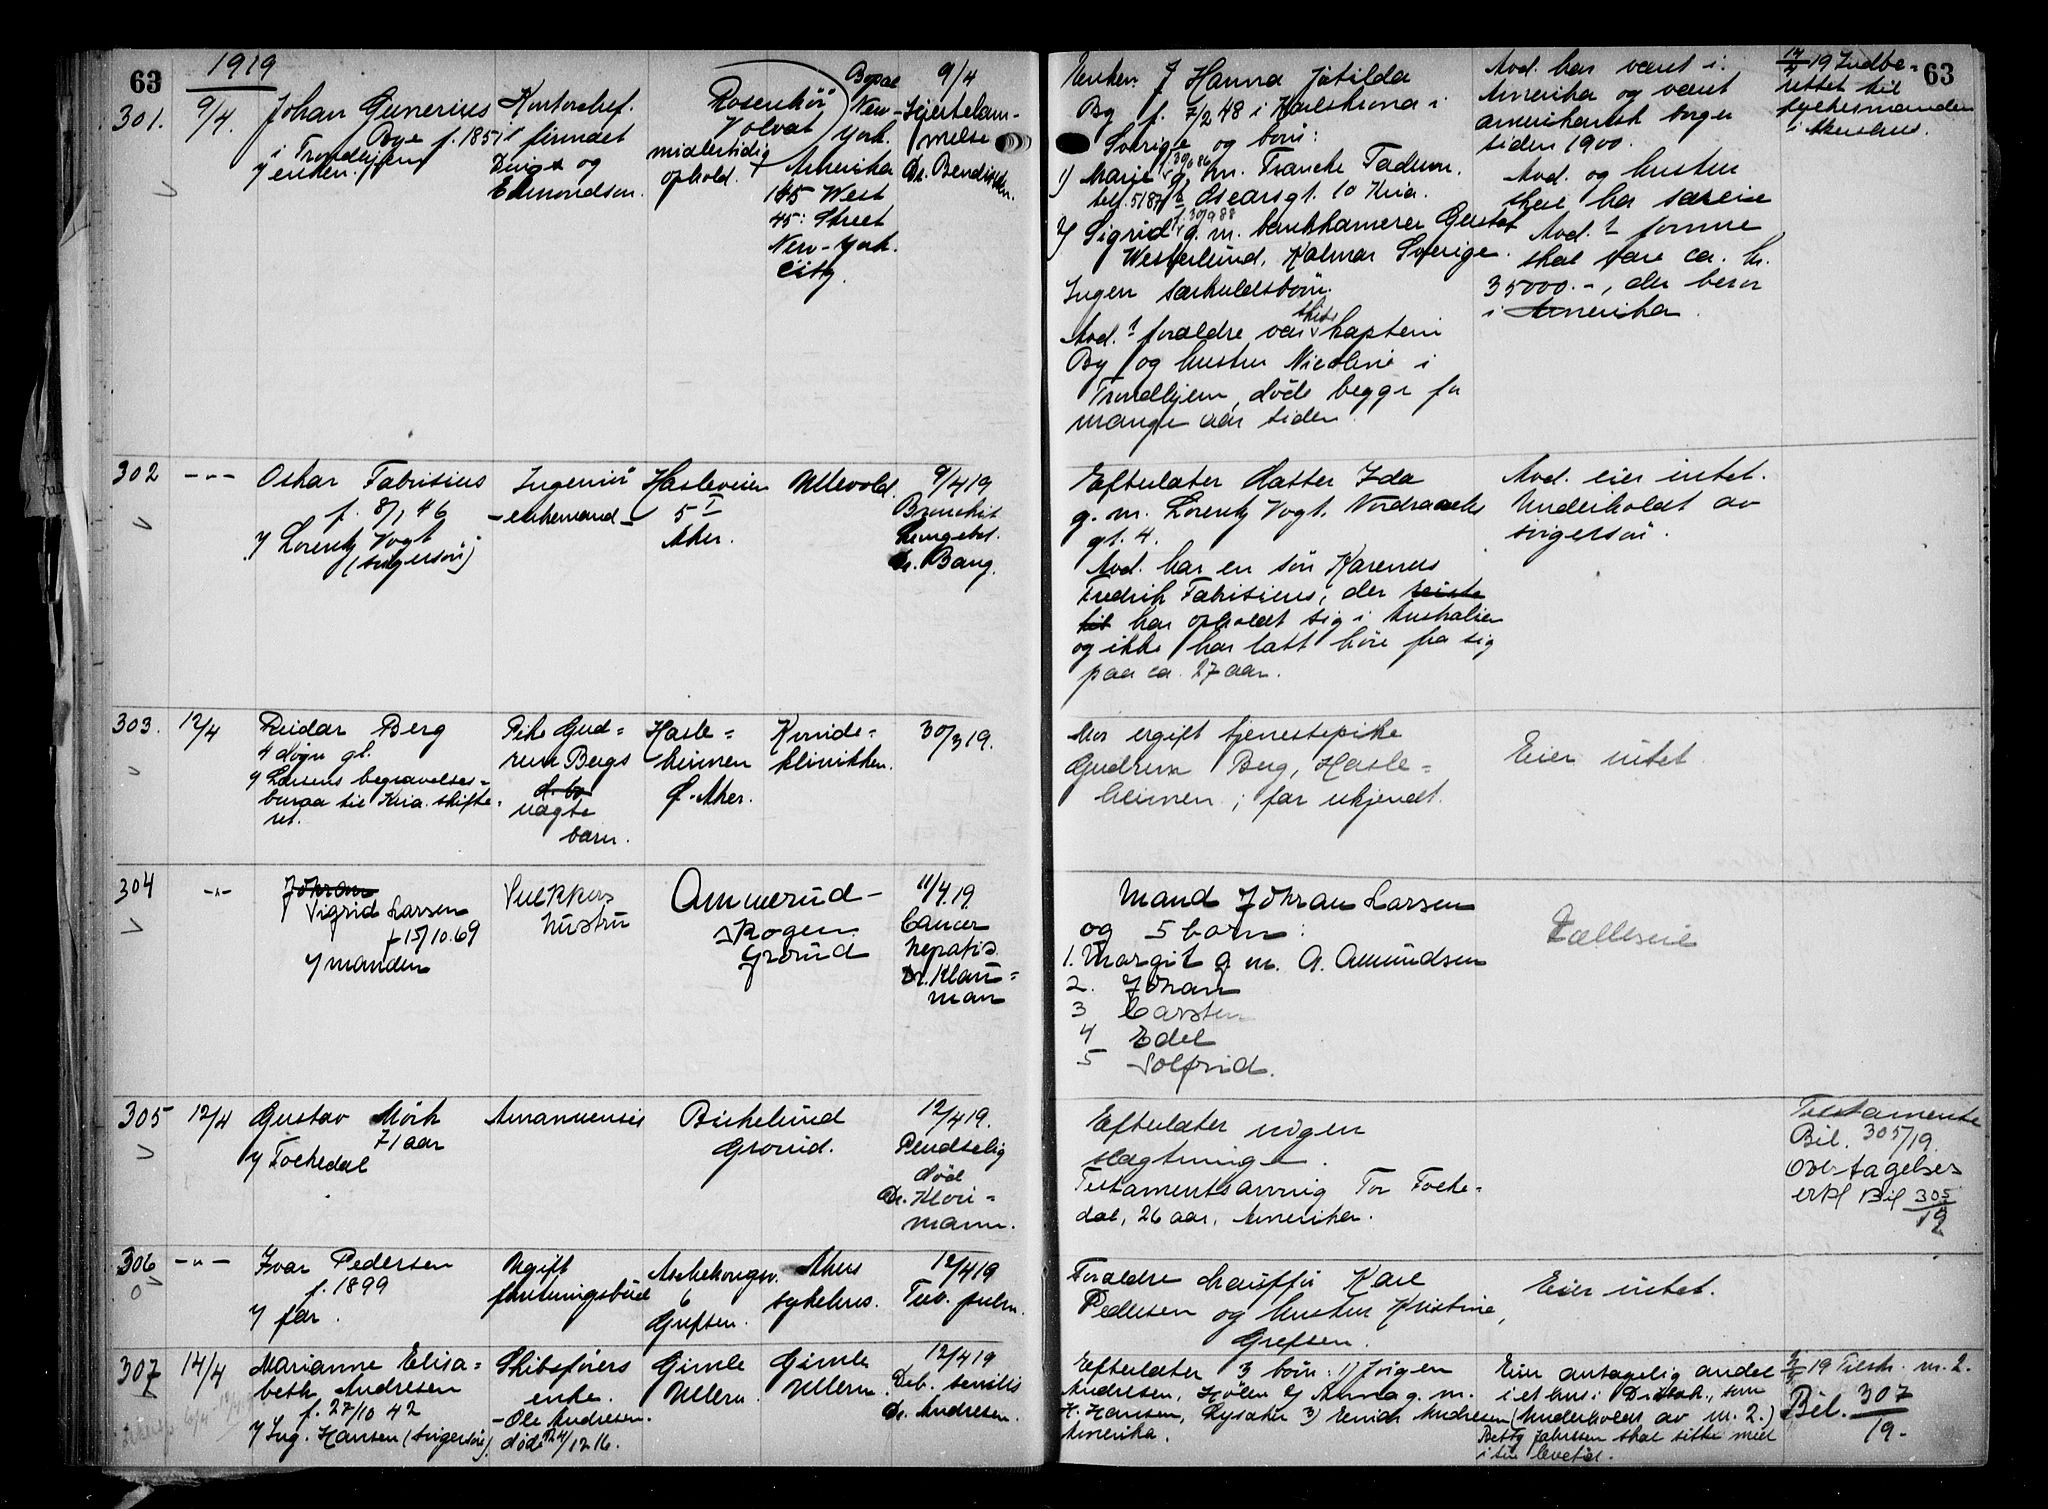 63
1919
301.
9/4.
Johan Gunerius
Bye f. 1851
i Trondhjem
enken.
Kontorchef.
i firmaet
og
Edmondson.
Rosenhöi
Volvat
midlertidig
ophold.
Bopæl
New-
York.
Amerika
145 West
45: Street
New-York.
City.
9/4
Hjertelam-
melse
Dr. Bendixen.
Enken Hanna Jotilda
By f. 7/2 48 i Karlskrona i
Sverige og børn:
1) Marie g. m. Francke
Oscarsgt. 10 Kria.
2) Sigrid g. m. bankkamerer Gustaf
Westerlund, Kalmar Sverige.
Ingen særkuldsbörn.
Avd.s forældre var skibskaptein
By og hustru Nicoline i
Trondhjem, döde begge for
mange aar siden.
Avd. har været i
Amerika og været
amerikansk borger
siden 1900.
Avd. og hustru
skal ha særeie
Avd.s formue
skal være ca. kr.
35000.-, der beror
i Amerika.
19 Indbe-
rettet til
fylkesmanden
i Akershus.
63
302
-"-
Oskar Fabrisius
f. 8/1 46
Lorentz Vogt
(svigersön)
Ingeniör
-enkemand-
Hasleveien
5 I
Aker.
Ullevold.
9/4 19
Bronchit
Lungebet.
Dr. Bang.
Efterlater datter Ida
g. m. Lorentz Vogt. Nordraaks
gt. 4.
Avd. har en sön Karenus
Fredrik Fabrisius, der reiste
til har opholdt sig i Australien
og ikke har latt höre fra sig
paa ca. 27 aar.
Avd. eier intet.
Underholdt av
svigersön.
303.
12/4
Reidar Berg
4 døgn gl.
Larsens begravelses-
buraa til Kria. skifte-
ret.
Pike Gud-
run Bergs
uægte
barn.
Hasle-
heimen
Ö. Aker.
Kvinde-
klinikken.
30/3 19.
Mor ugift tjenestepike
Gudrun Berg, Hasle-
heimen; far ukjendt.
Eier intet.
304
-"-
Johan
Sigrid Larsen
f 15/10.69
manden
hustru
Ammerud-
skogen
Grorud
11/4.19
Cancer
hepatis.
Dr. Klau-
man
Mand Johan Larsen
og 5 barn:
1. Margit g m. A. Amundsen
2. Johan
3 Carsten
4 Edel
5 Solfrid.
Fælleseie
305
12/4
Gustav Mörk
71 aar
Folkedal
Amanuensis
Birkelund
Grorud.
12/4 19.
Pludselig
död
Dr. Klou-
mann.
Efterlater ingen
slægtninge.
Testamentsarving Tor Folke-
dal, 26 aar, Amerika.
Testamente
Bil. 305/19.
Overtagelses
erkl Bil 305/19
306
-"-
Ivar Pedersen
f. 1899
far.
Ugift
forretningsbud
6
Grefsen.
Akers
sykehus.
12/4 19
Tub. pulm.
Forældre chaufför Karl
Pedersen og hustru Kristine,
Grefsen.
Eier intet.
307
14/4
Marianne Elisa-
beth Andresen
f. 27/10 42
Ing. Hansen (svigersön).
Skibsförers
enke.
-Ole Andresen.
död 24/12 16.
Gimle
Ullern.
Gimle
Ullern.
12/4 19
Deb. senilis
Dr. Andresen.
Efterlater 3 börn: 1) Jörgen
Andresen, 2) Anna g. m.
H. Hansen, Lysaker 3) Andresen
Amerika.
Eier antagelig andel
i et hus i
(Underholdt av nr. 2.)
Betty skal sitte med
i sin levetid.
19 Tilstr. nr. 2.
Bil. 307/19-